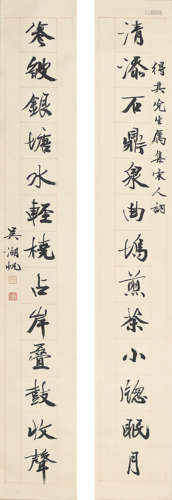 得其先生屬集宋人詞
清添石鼎泉曲塢煎茶小牕眠月
寒皺銀塘水輕橈占岸疊鼓收聲
吳湖帆